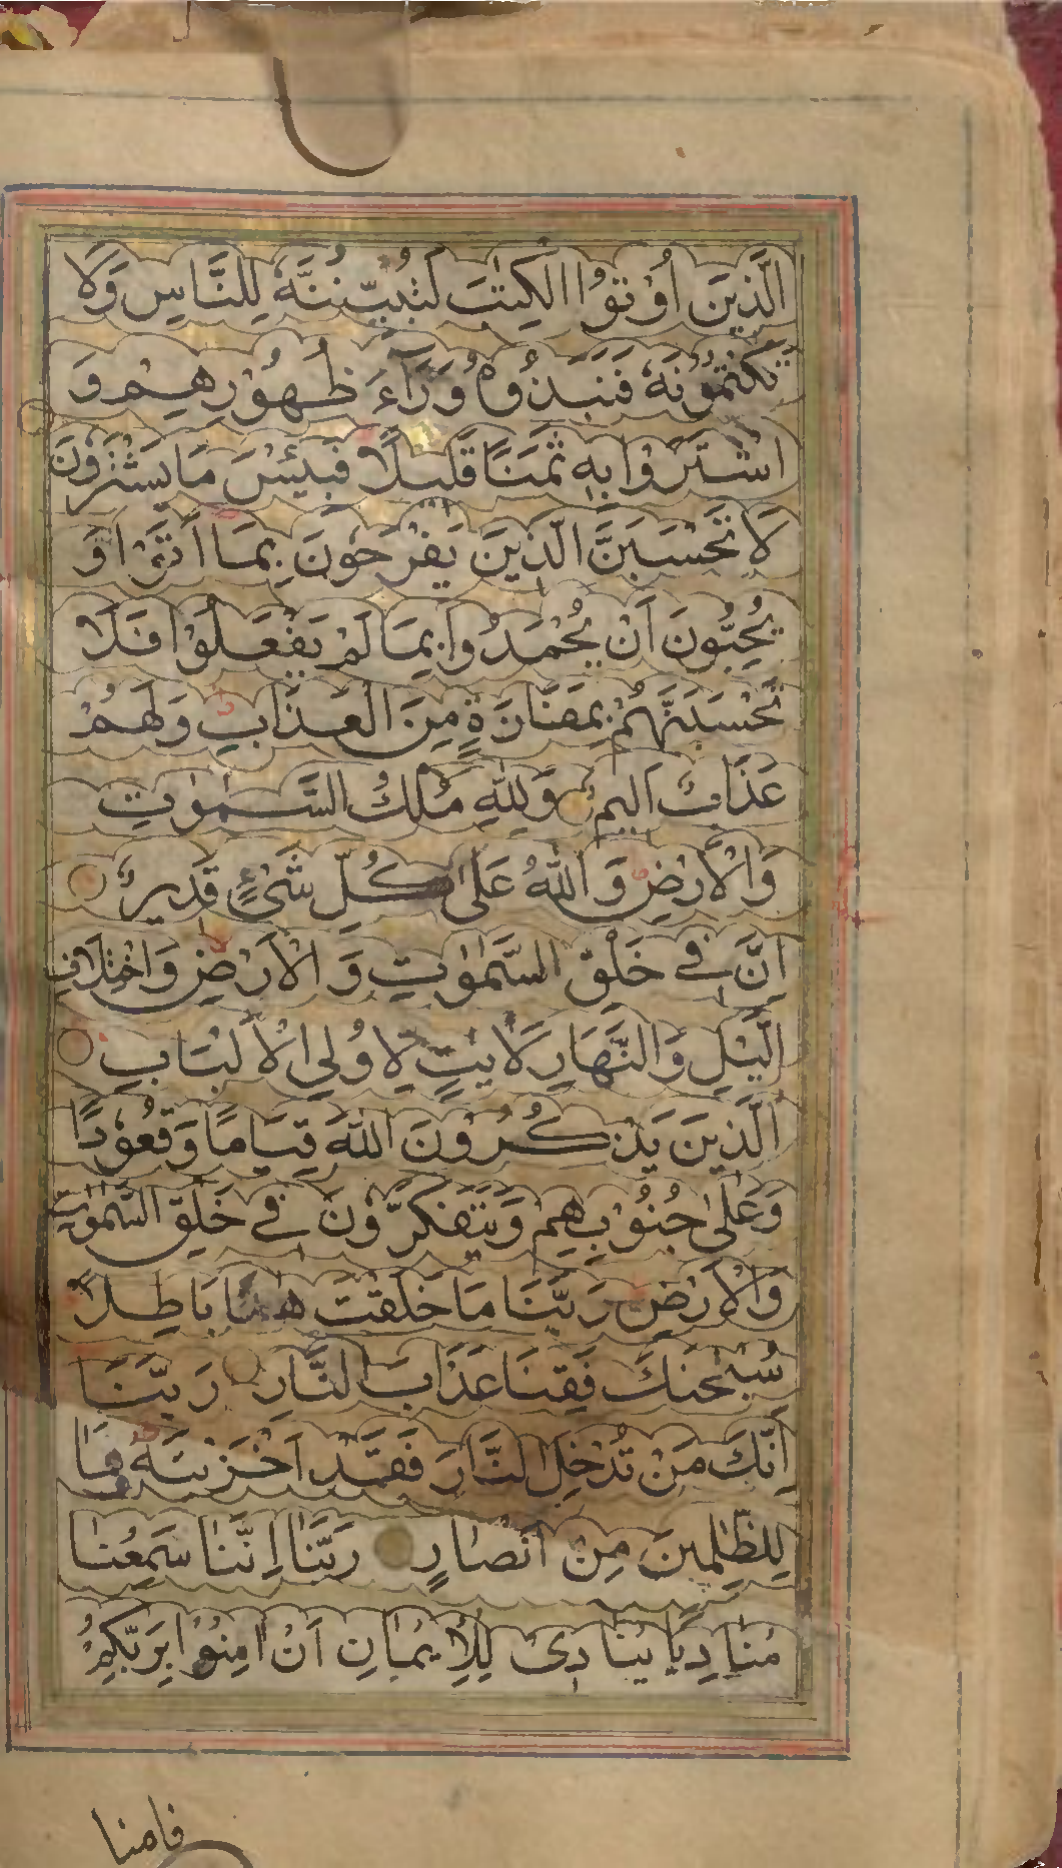 الَّذِينَ اُوْتُوا الْكِتٰبَ لَتُبَيِّنُنَّهٗ لِلنَّاسِ وَلَا
تَكْتُمُوْنَهٗ فَنَبَذُوهُ وَرَآءَ ظُهُوْرِهِمْ وَ
اشْتَرَوْا بِهٖ ثَمَنًا قَلِيلًا فَبِئْسَ مَا يَشْتَرُونَ
لَا تَحْسَبَنَّ الَّذِينَ يَفْرَحُونَ بِمَا اَتَوْا وَ
يُحِبُّونَ اَنْ يُحْمَدُوا بِمَا لَمْ يَفْعَلُوْا فَلَا
تَحْسَبَنَّهُمْ بِمَفَازَةٍ مِنَ الْعَذَابِ وَلَهُمْ
عَذَابٌ اَلِيمٌ وَلِلّٰهِ مُلْكُ السَّمٰوٰتِ
وَالْاَرْضِ وَاللّٰهُ عَلٰى كُلِّ شَيْءٍ قَدِيرٌ
اِنَّ فِي خَلْقِ السَّمٰوٰتِ وَالْاَرْضِ وَاخْتِلَافِ
الَّيْلِ وَالنَّهَارِ لَاٰيٰتٍ لِاُولِي الْاَلْبَابِ
الَّذِينَ يَذْكُرُوْنَ اللّٰهَ قِيَامًا وَقُعُوْدًا
وَعَلٰى جُنُوْبِهِمْ وَيَتَفَكَّرُوْنَ فِي خَلْقِ السَّمٰوٰتِ
وَالْاَرْضِ رَبَّنَا مَا خَلَقْتَ هٰذَا بَاطِلًا
سُبْحٰنَكَ فَقِنَا عَذَابَ النَّارِ رَبَّنَا
اِنَّكَ مَنْ تُدْخِلِ النَّارَ فَقَدْ اَخْزَيْتَهٗ وَمَا
لِلظّٰلِمِينَ مِنْ اَنْصَارٍ رَبَّنَا اِنَّنَا سَمِعْنَا
مُنَادِيًا يُنَادِى لِلْاِيمَانِ اَنْ اٰمِنُوْا بِرَبِّكُمْ
فامنا